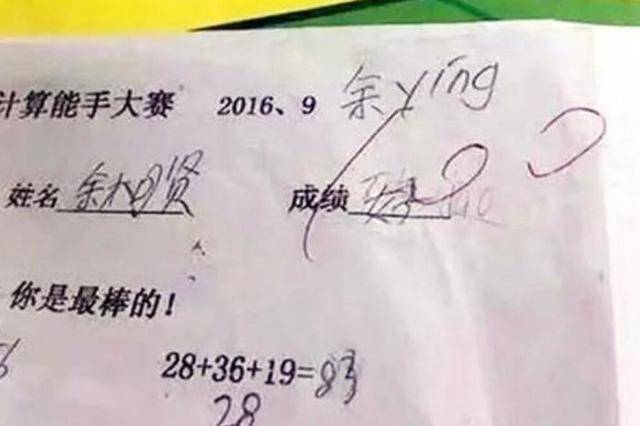 计算能手大赛 2016、9 余ying
姓名 余 贤 成绩
你是最棒的!
28+36+19=83
28